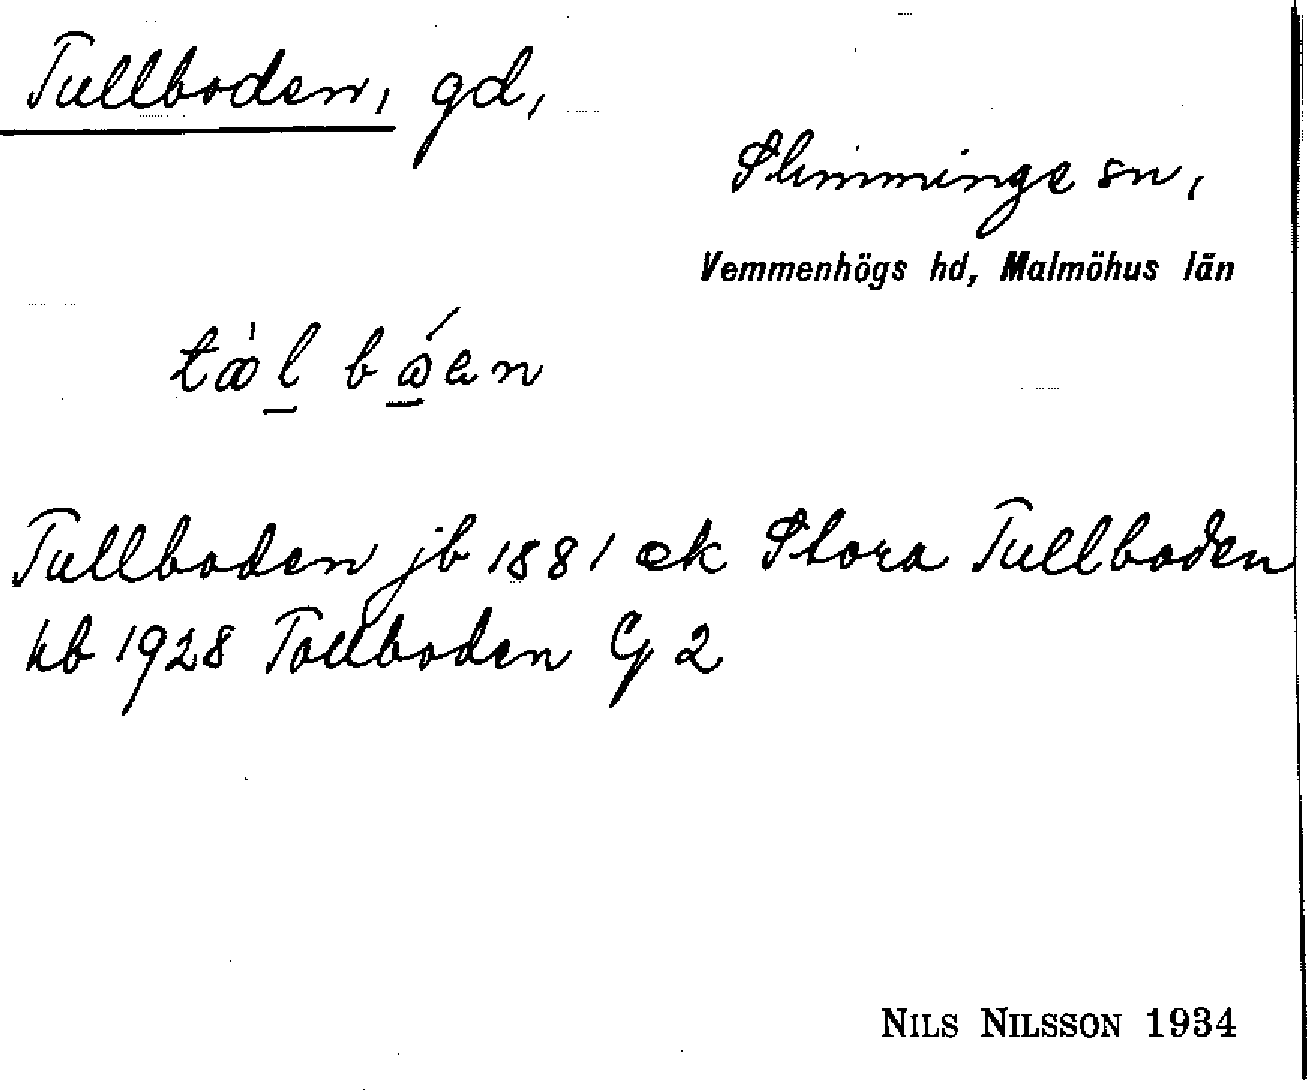 Tullboden, gd,
Slimminge sn,
Vemmenhögs hd, Malmöhus län
Tullboden jb 1881 ek Stora Tullboden
kb 1928 Tollboden G 2
NILS NILSSON 1934